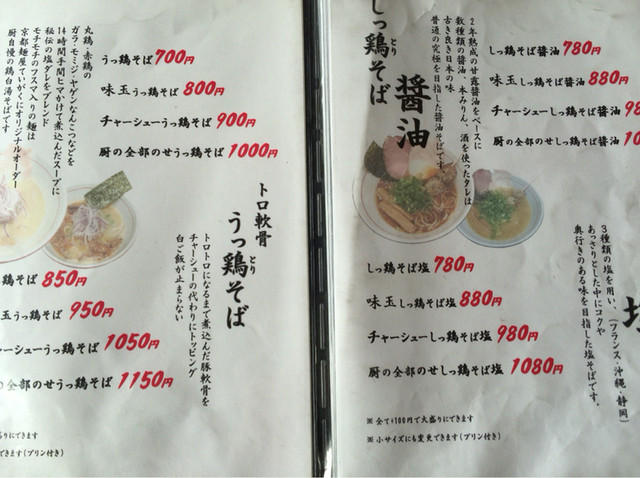 丸鶏・赤鶏の
ガラ・モミジ・ヤゲンなんこつなどを
14時間手間ヒマかけて煮込んだスープに
秘伝の塩ダレをブレンド
モチモチのフスマ入りの麺は
京都麺屋ていがくにオリジナルオーダー
厨自慢の鶏白湯そばです
うっ鶏そば 700円
味玉うっ鶏そば 800円
チャーシューうっ鶏そば 900円
厨の全部のせうっ鶏そば 1000円
トロ軟骨
うっ鶏そば
とり
トロトロになるまで煮込んだ豚軟骨を
チャーシューの代わりにトッピング
白ご飯が止まらない
鶏そば 850円
玉うっ鶏そば 950円
ャーシューうっ鶏そば 1050円
の全部のせうっ鶏そば 1150円
盛りにできます
できます(プリン付き)
しっ鶏そば
とり
醤油
2年熟成の甘露醤油をベースに
数種類の醤油、本みりん、酒を使ったタレは
古き良き日本の味
普通の究極を目指した醤油そばです。
しっ鶏そば醤油 780円
味玉しっ鶏そば醤油 880円
チャーシューしっ鶏そば醤油
厨の全部のせしっ鶏そば醤油
3種類の塩を用い、(フランス・沖縄・静岡)
あっさりとした中にコクや
奥行きのある味を目指した塩そばです。
しっ鶏そば塩 780円
味玉しっ鶏そば塩 880円
チャーシューしっ鶏そば塩 980円
厨の全部のせしっ鶏そば塩 1080円
※全て+100円で大盛りにできます
※小サイズにも変更できます(プリン付き)